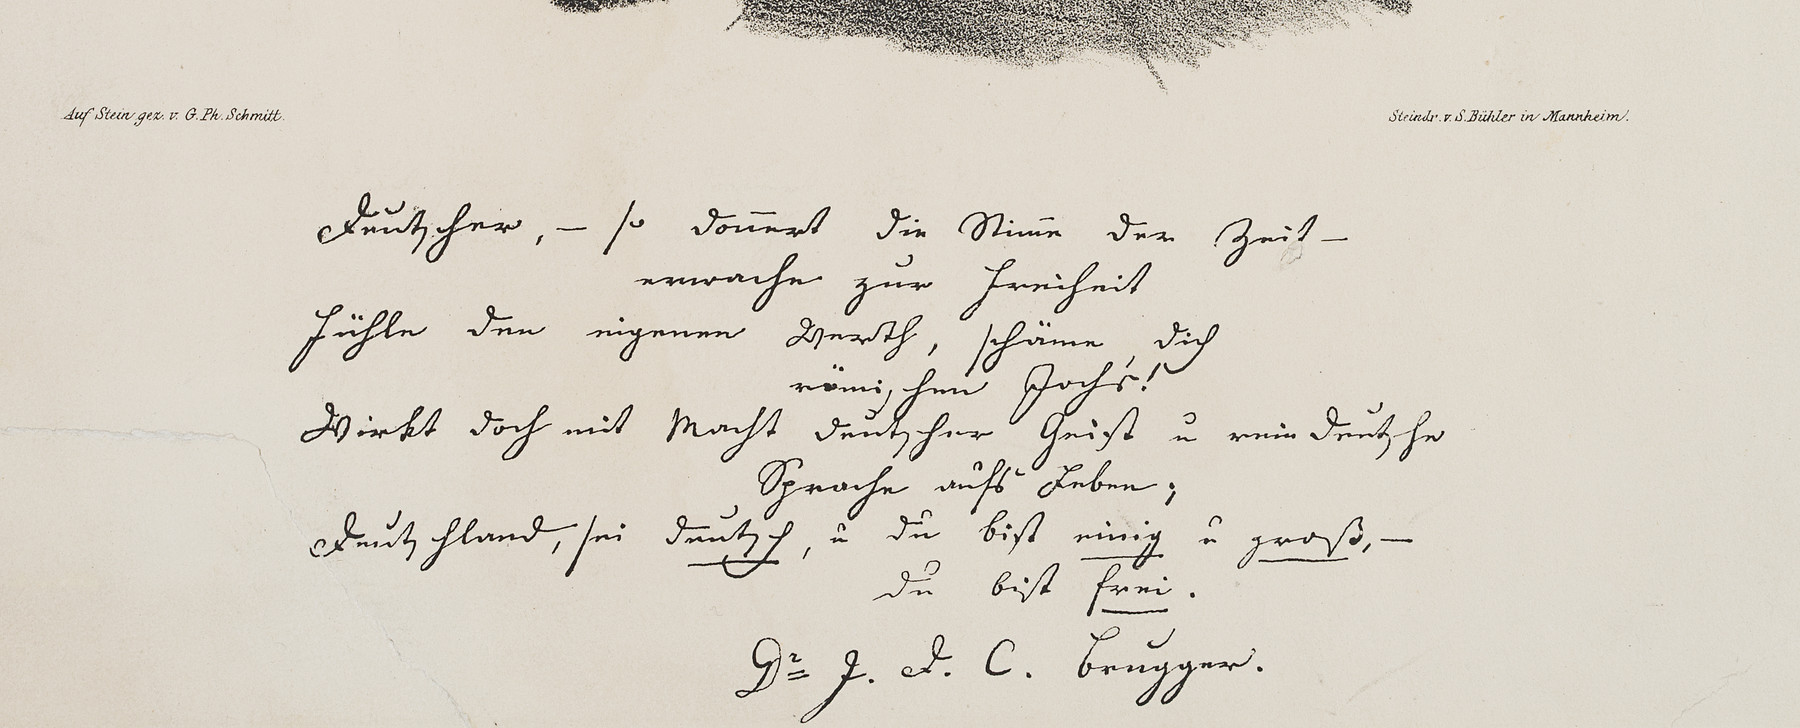 Auf Stein gez. v. G. Ph. Schmitt.
Steindr. v. S. Bühler in Mannheim.
Deutscher, – so don̄ert die Stim̄e der Zeit –
erwache zur Freiheit
Fühle den eigenen Werth, schäme dich
römischen Joch's!
Wirkt doch mit Macht deutscher Geist u rein deutsche
Sprache aufs Leben;
Deutschland, sei deutsch, u du bist einig u groß, –
du bist frei.
Dr J. D. C. Brugger.